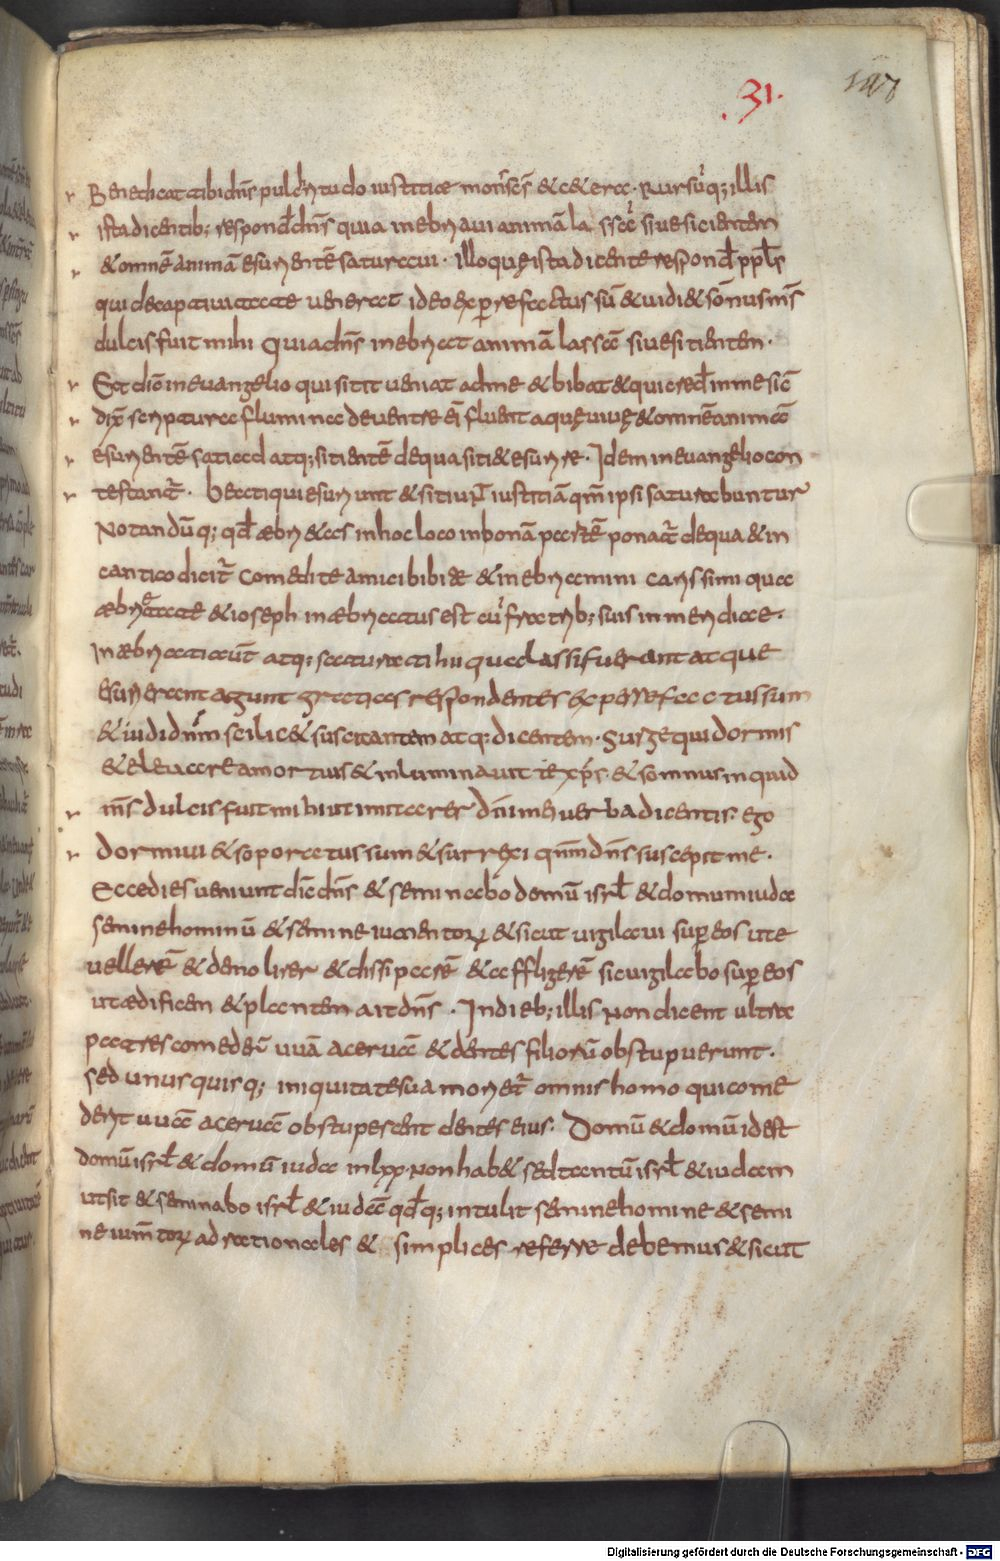 .31.
Benedicat tibi dn̄s pulchritudo iustitiae mons scs̄ & cetera. Rursūq; illis
ista dicentib; respond& dn̄s quia inebriaui animā lassā siue sitientem
& omnē animā esurientē saturaui. Illo quę ista dicente respond& ppl̄s
qui de captiuitate uenerat ideo experrefactus sū & uidi & somnus m̄s
dulcis fuit mihi Quia dn̄s inebriat animā lassā siue sitientem.
Sęd dīc in euangelio qui sitit ueniat ad me & bibat & qui credit in me sic̄
dix̄ scriptura flumina de uentre ei' fluent aquę uiuę & omnē animā
esurientē satiad atq; sitientē de qua siti & esurire. Idem in euangelio con
testant̄. beati qui esuriunt & sitiunt iustitiā qm̄ ipsi saturabuntur
Notandūq; qd̄ æbri&as in hoc loco in bonā partē ponat̄ de qua & in
cantico dicit̄ comedite amici bibite & inebriamini carissimi quae
æbrietate & ioseph inæbriatus est cū fratrib; suis in meridiae.
Inæbriati eūt atq; saturati hi quae lassi fuerant atque
esurierant agunt gratias respondentes experrefactus sum
& uidi dn̄m scilic& suscitantem atq; dicentem. Surge qui dormis
& eleuare a mortuis & inluminauit te xp̄s & somnus inquid
m̄s dulcis fuit mihi ut imitarer dn̄i mei uerba dicentis. ego
dormiui & soporatus sum & surrexi qm̄ dn̄s suscepit me.
Ecce dies ueniunt dīc dn̄s & seminabo domū isrl̄ & domum iuda
semine hominū & semine iumentorꝝ & sicut uigilaui sup eos ute
uellerē & demolirer & dissiparē & affligerē sic uigilabo sup eos
ut ædificem & plantem ait dn̄s. In dieb; illis non dicent ultra
patres comeder̄ uuā aceruā & dentes filiorū obstupuerunt.
sed unusquisq; iniquitate sua moriet̄ omnis homo qui come
derit uuā aceruā obstupescent dentes eius. Domū & domū id est
domū isrl̄ & domū iudae in lxx. non hab& sed tantū isrl̄ & iudam
ut sit & seminabo isrl̄ & iudā qd̄q; intulit semine homine & semi
ne iumtorꝝ ad rationales & simplices referre debemus & sicut
Digitalisierung gefördert durch die Deutsche Forschungsgemeinschaft - DFG